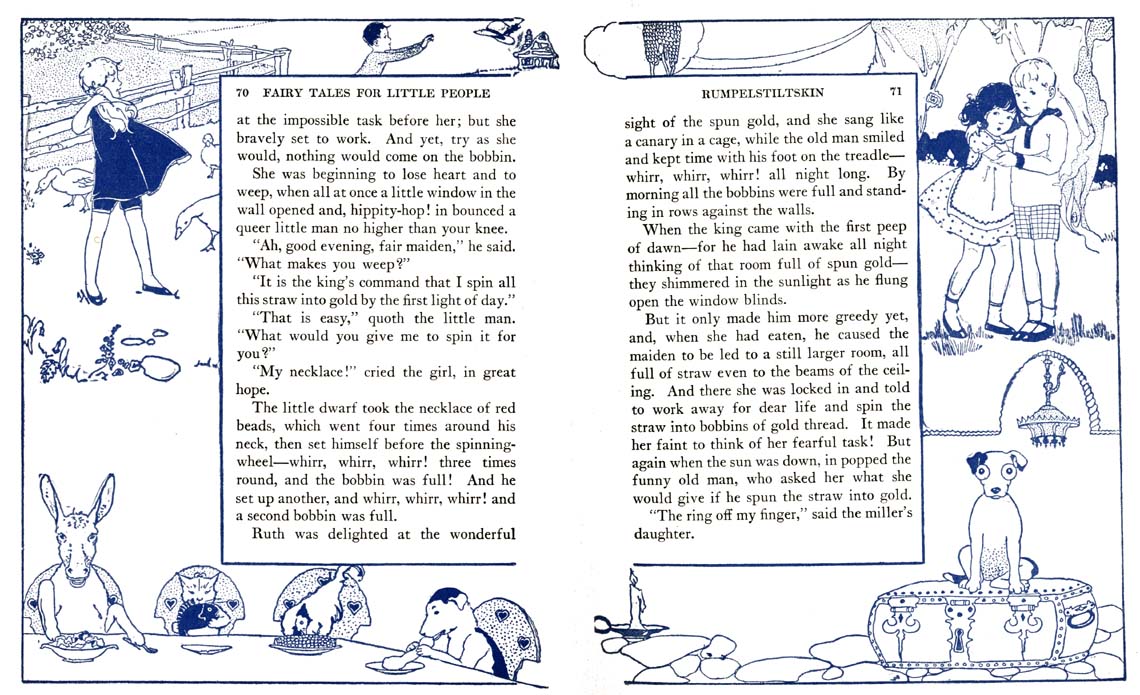 70 FAIRY TALES FOR LITTLE PEOPLE
at the impossible task before her; but she
bravely set to work. And yet, try as she
would, nothing would come on the bobbin.
She was beginning to lose heart and to
weep, when all at once a little window in the
wall opened and, hippity-hop! in bounced a
queer little man no higher than your knee.
"Ah, good evening, fair maiden," he said.
"What makes you weep?"
"It is the king's command that I spin all
this straw into gold by the first light of day."
"That is easy," quoth the little man.
"What would you give me to spin it for
you?"
"My necklace!" cried the girl, in great
hope.
The little dwarf took the necklace of red
beads, which went four times around his
neck, then set himself before the spinning-
wheel—whirr, whirr, whirr! three times
round, and the bobbin was full! And he
set up another, and whirr, whirr, whirr! and
a second bobbin was full.
Ruth was delighted at the wonderful
RUMPELSTILTSKIN 71
sight of the spun gold, and she sang like
a canary in a cage, while the old man smiled
and kept time with his foot on the treadle—
whirr, whirr, whirr! all night long. By
morning all the bobbins were full and stand-
ing in rows against the walls.
When the king came with the first peep
of dawn—for he had lain awake all night
thinking of that room full of spun gold—
they shimmered in the sunlight as he flung
open the window blinds.
But it only made him more greedy yet,
and, when she had eaten, he caused the
maiden to be led to a still larger room, all
full of straw even to the beams of the ceil-
ing. And there she was locked in and told
to work away for dear life and spin the
straw into bobbins of gold thread. It made
her faint to think of her fearful task! But
again when the sun was down, in popped the
funny old man, who asked her what she
would give if he spun the straw into gold.
"The ring off my finger," said the miller's
daughter.